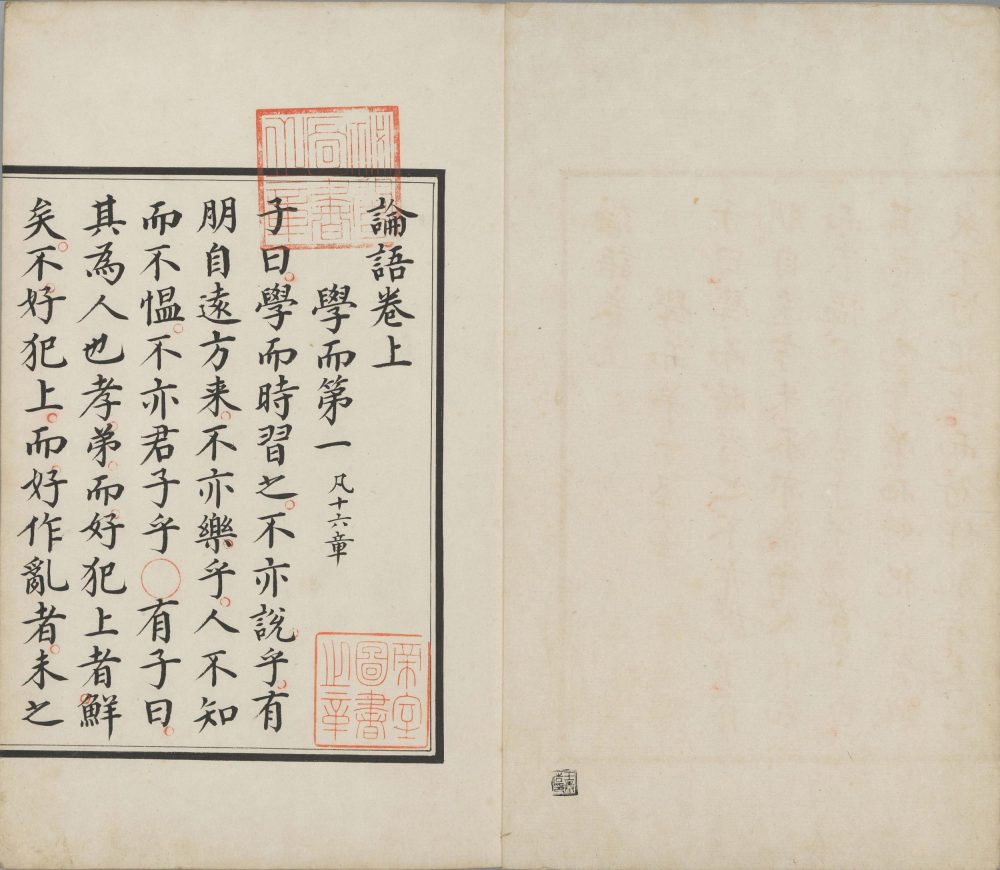 論語卷上
學而第一 凡十六章
子曰學而時習之不亦說乎有
朋自遠方来不亦樂乎人不知
而不愠不亦君子乎○有子曰
其為人也孝弟而好犯上者鮮
矣不好犯上而好作亂者未之
帝室
圖書
之章